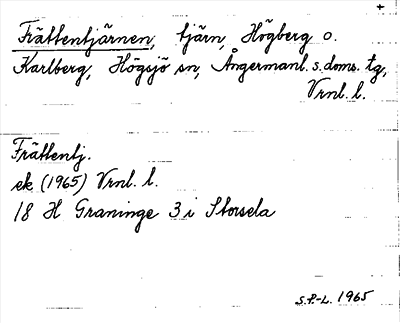 +
Frättentjärnen, tjärn, Högberg o.
Karlberg, Högsjö sn, Ångermanl. s. doms. tg,
Vrnl. l.
Frättentj.
ek (1965) Vrnl. l.
18 H Graninge 3 i Storsela
S.P-L. 1965